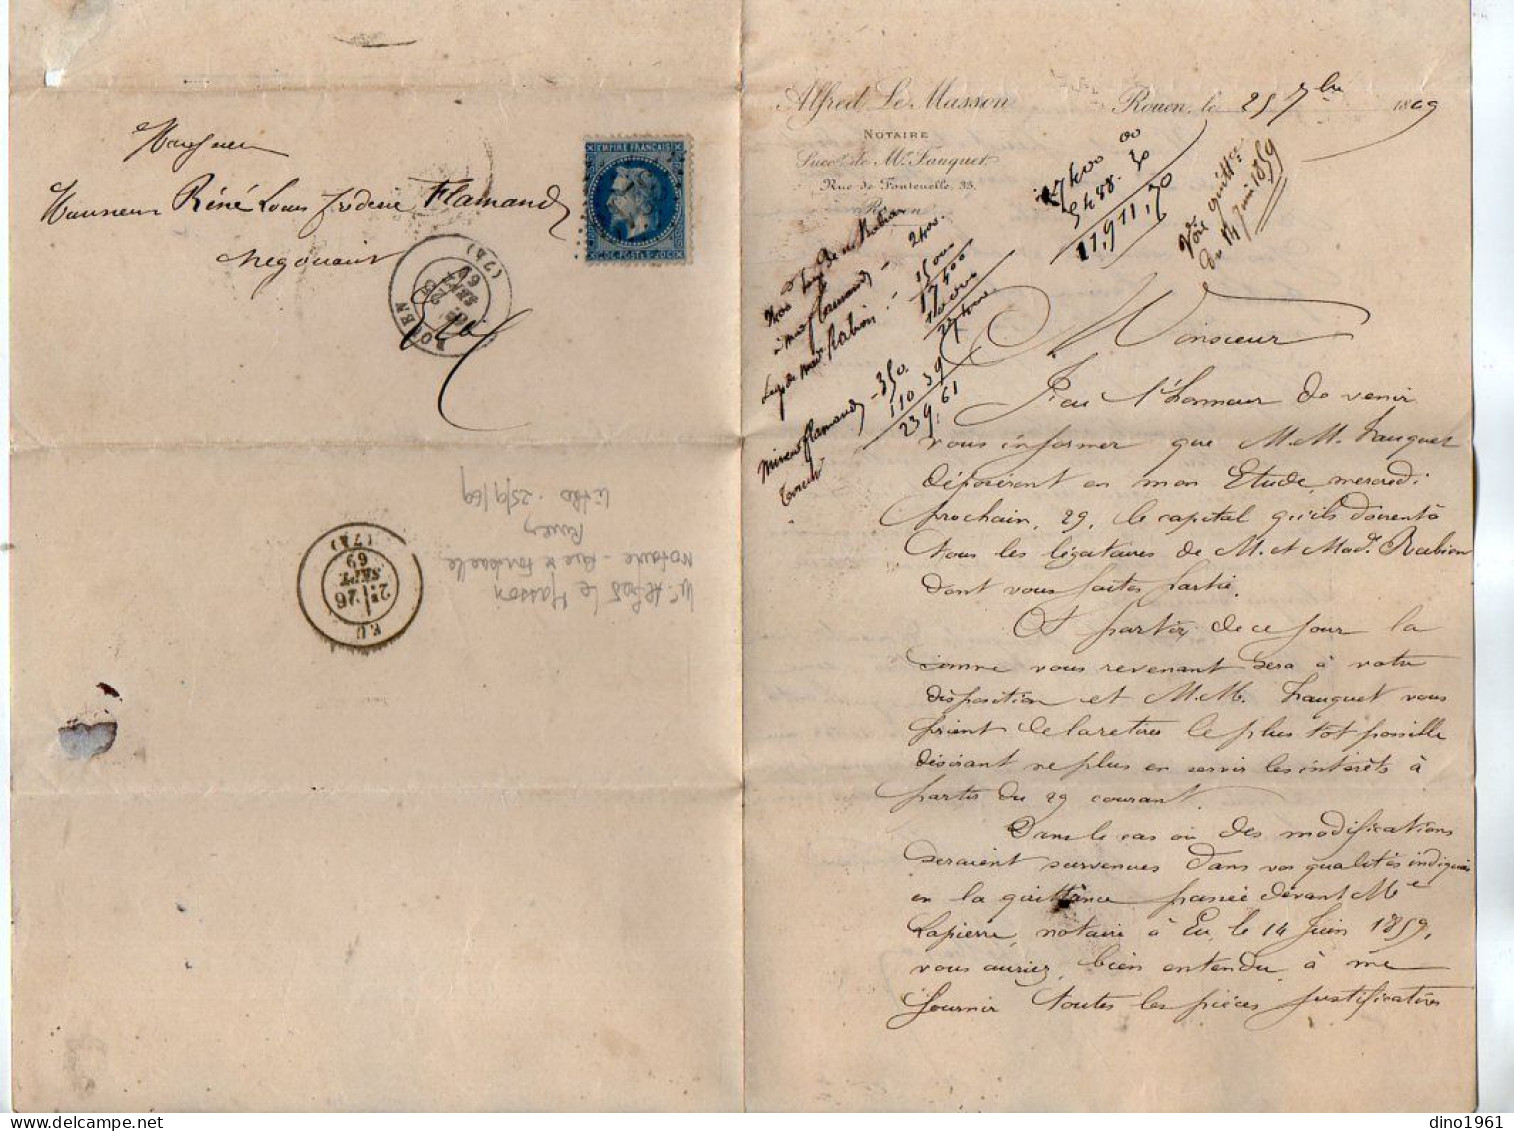 Monsieur
Monsieur Réné Louis Frédéric Flamand
Négociant
Eu
EMPIRE FRANÇAIS
20C POSTES 20C
ROUEN
SEPT
69
(74)
EU
2E
26
SEPT
69
(74)
Me Alfred Le Masson
notaire - Rue de Fontenelle
Rouen
Litho. 25/9/69
Alfred Le Masson
NOTAIRE
Succr de Me Fauquet
Rue de Fontenelle, 35.
Rouen
Rouen, le 25 7bre 1869
17400 00
5488. 30
11,911,70
Voir quittce
du 14 juin 1859
à mad flamand
Leg de mad Rabion
2400.
15000
17400
10000
27400
Mineur flamand - 350.
110 39
239.61
Monsieur
J'ai l'honneur de venir
vous informer que M.M. Fauquet
déposeront en mon Etude, mercredi
prochain, 29, le capital qu'ils doivent à
tous les légataires de M. et Made. Rabion
dont vous faites partie.
A partir de ce jour la
somme vous revenant sera à votre
disposition et M.M. Fauquet vous
prient de la retirer le plus tot possible
désirant ne plus en servir les intérêts à
partir du 29 courant.
Dans le cas où des modifications
seraient survenues dans vos qualités indiquées
en la quittance passée devant Me
Lapierre, notaire à Eu, le 14 Juin 1859,
vous auriez, bien entendu, à me
fournir toutes les pièces justificatives
dino1961